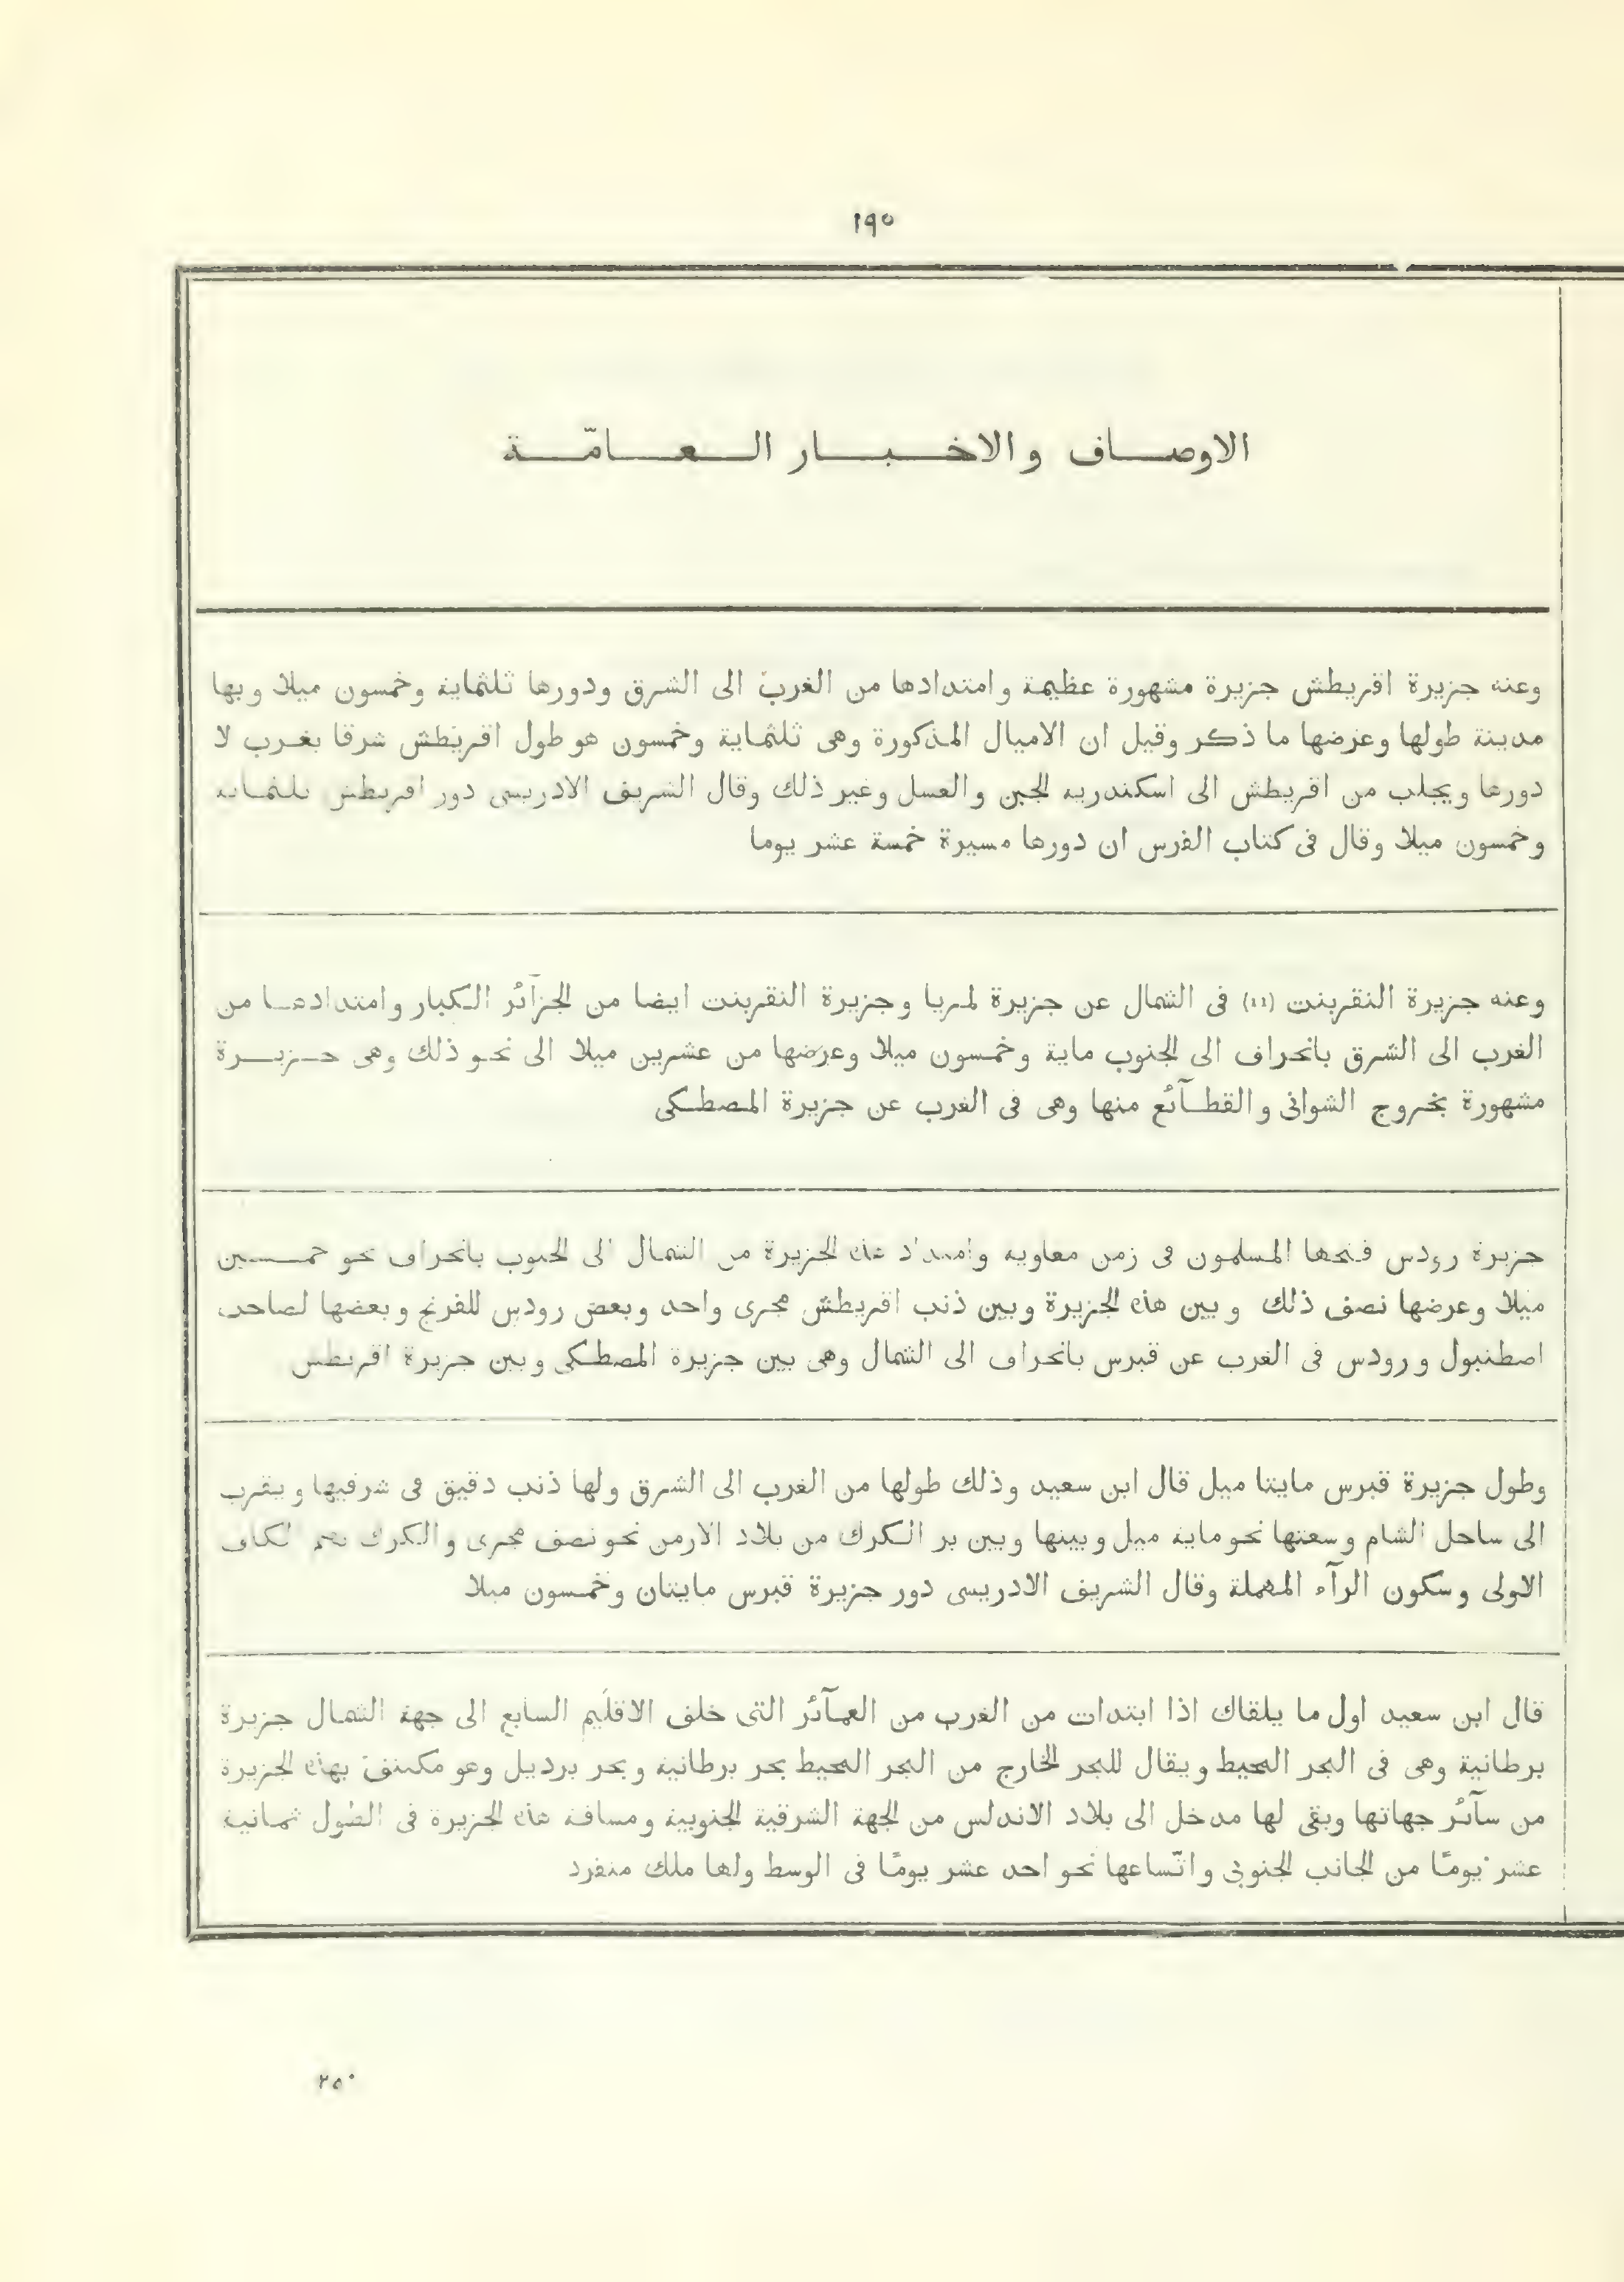 ١٩٥
الاوصاف والاخبار العامّة
وعنه جزيرة اقريطش جزيرة مشهورة عظيمة وامتدادها من الغرب الى الشرق ودورها ثلثماية وخمسون ميلا وبها
مدينة طولها وعرضها ما ذكر وقيل ان الاميال المذكورة وهى ثلثماية وخمسون هو طول اقريطش شرقا بغرب لا
دورها ويجلب من اقريطش الى اسكندرية الجبن والعسل وغير ذلك وقال الشريف الادريسى دور اقريطش ثلثماية
وخمسون ميلا وقال فى كتاب الفرس ان دورها مسيرة خمسة عشر يوما
وعنه جزيرة النقربنت (١١) فى الشمال عن جزيرة لمريا وجزيرة النقربنت ايضا من الجزآئر الكبار وامتدادها من
الغرب الى الشرق بانحراف الى الجنوب ماية وخمسون ميلا وعرضها من عشرين ميلا الى نحو ذلك وهى جزيرة
مشهورة بخروج الشوانى والقطآئع منها وهى فى الغرب عن جزيرة المصطكى
جزيرة رودس فتحها المسلمون فى زمن معاوية وامتداد هذه الجزيرة من الشمال الى الجنوب بانحراف نحو خمسين
ميلا وعرضها نصف ذلك وبين هذه الجزيرة وبين ذنب اقريطش مجرى واحد وبعض رودس للفرنج وبعضها لصاحب
اصطنبول ورودس فى الغرب عن قبرس بانحراف الى الشمال وهى بين جزيرة المصطكى وبين جزيرة اقريطش
وطول جزيرة قبرس مايتا ميل قال ابن سعيد وذلك طولها من الغرب الى الشرق ولها ذنب دقيق فى شرقيها ويقرب
الى ساحل الشام وسعتها نحو ماية ميل وبينها وبين بر الكرك من بلاد الارمن نحو نصف مجرى والكرك بضم الكاف
الاولى وسكون الرآء المهملة وقال الشريف الادريسى دور جزيرة قبرس مايتان وخمسون ميلا
قال ابن سعيد اول ما يلقاك اذا ابتدات من الغرب من العمآئر التى خلف الاقليم السابع الى جهة الشمال جزيرة
برطانية وهى فى البحر المحيط ويقال للبحر الخارج من البحر المحيط بحر برطانية وبحر برديل وهو مكتنف بهذه الجزيرة
من سآئر جهاتها وبقى لها مدخل الى بلاد الاندلس من الجهة الشرقية الجنوبية ومسافة هذه الجزيرة فى الطول ثمانية
عشر يومًا من الجانب الجنوبى واتّساعها نحو احد عشر يومًا فى الوسط ولها ملك منفرد
٢٥٠